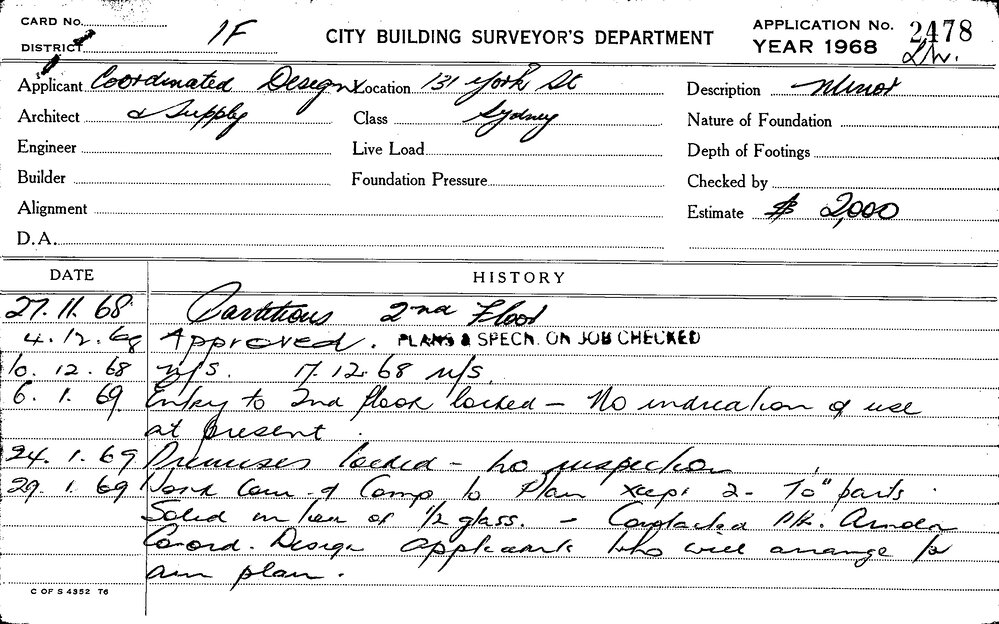 CARD No.
DISTRICT
1F
CITY BUILDING SURVEYOR'S DEPARTMENT
APPLICATION No. 2478
YEAR 1968
Applicant Coordinated Design Location 131 York St Description Minor
Architect & Supply Class Sydney Nature of Foundation
Engineer Live Load Depth of Footings
Builder Foundation Pressure Checked by
Alignment Estimate $ 2,000
D.A.
DATE HISTORY
27.11.68 Partitions 2nd Floor
4.12.68 Approved. PLANS & SPECN. ON JOB CHECKED
10.12.68 n/s. 17.12.68 n/s.
6.1.69 Entry to 2nd floor locked - No indication of use
at present.
24.1.69 Premises locked - no inspection
29.1.69 Work Com. & Comp to Plan xcept 2- 70" parts
Solid in lieu of 1/2 glass. - Contacted Mr.
Coord. Design applicants who will arrange for
am plan.
C OF S 4352 T6